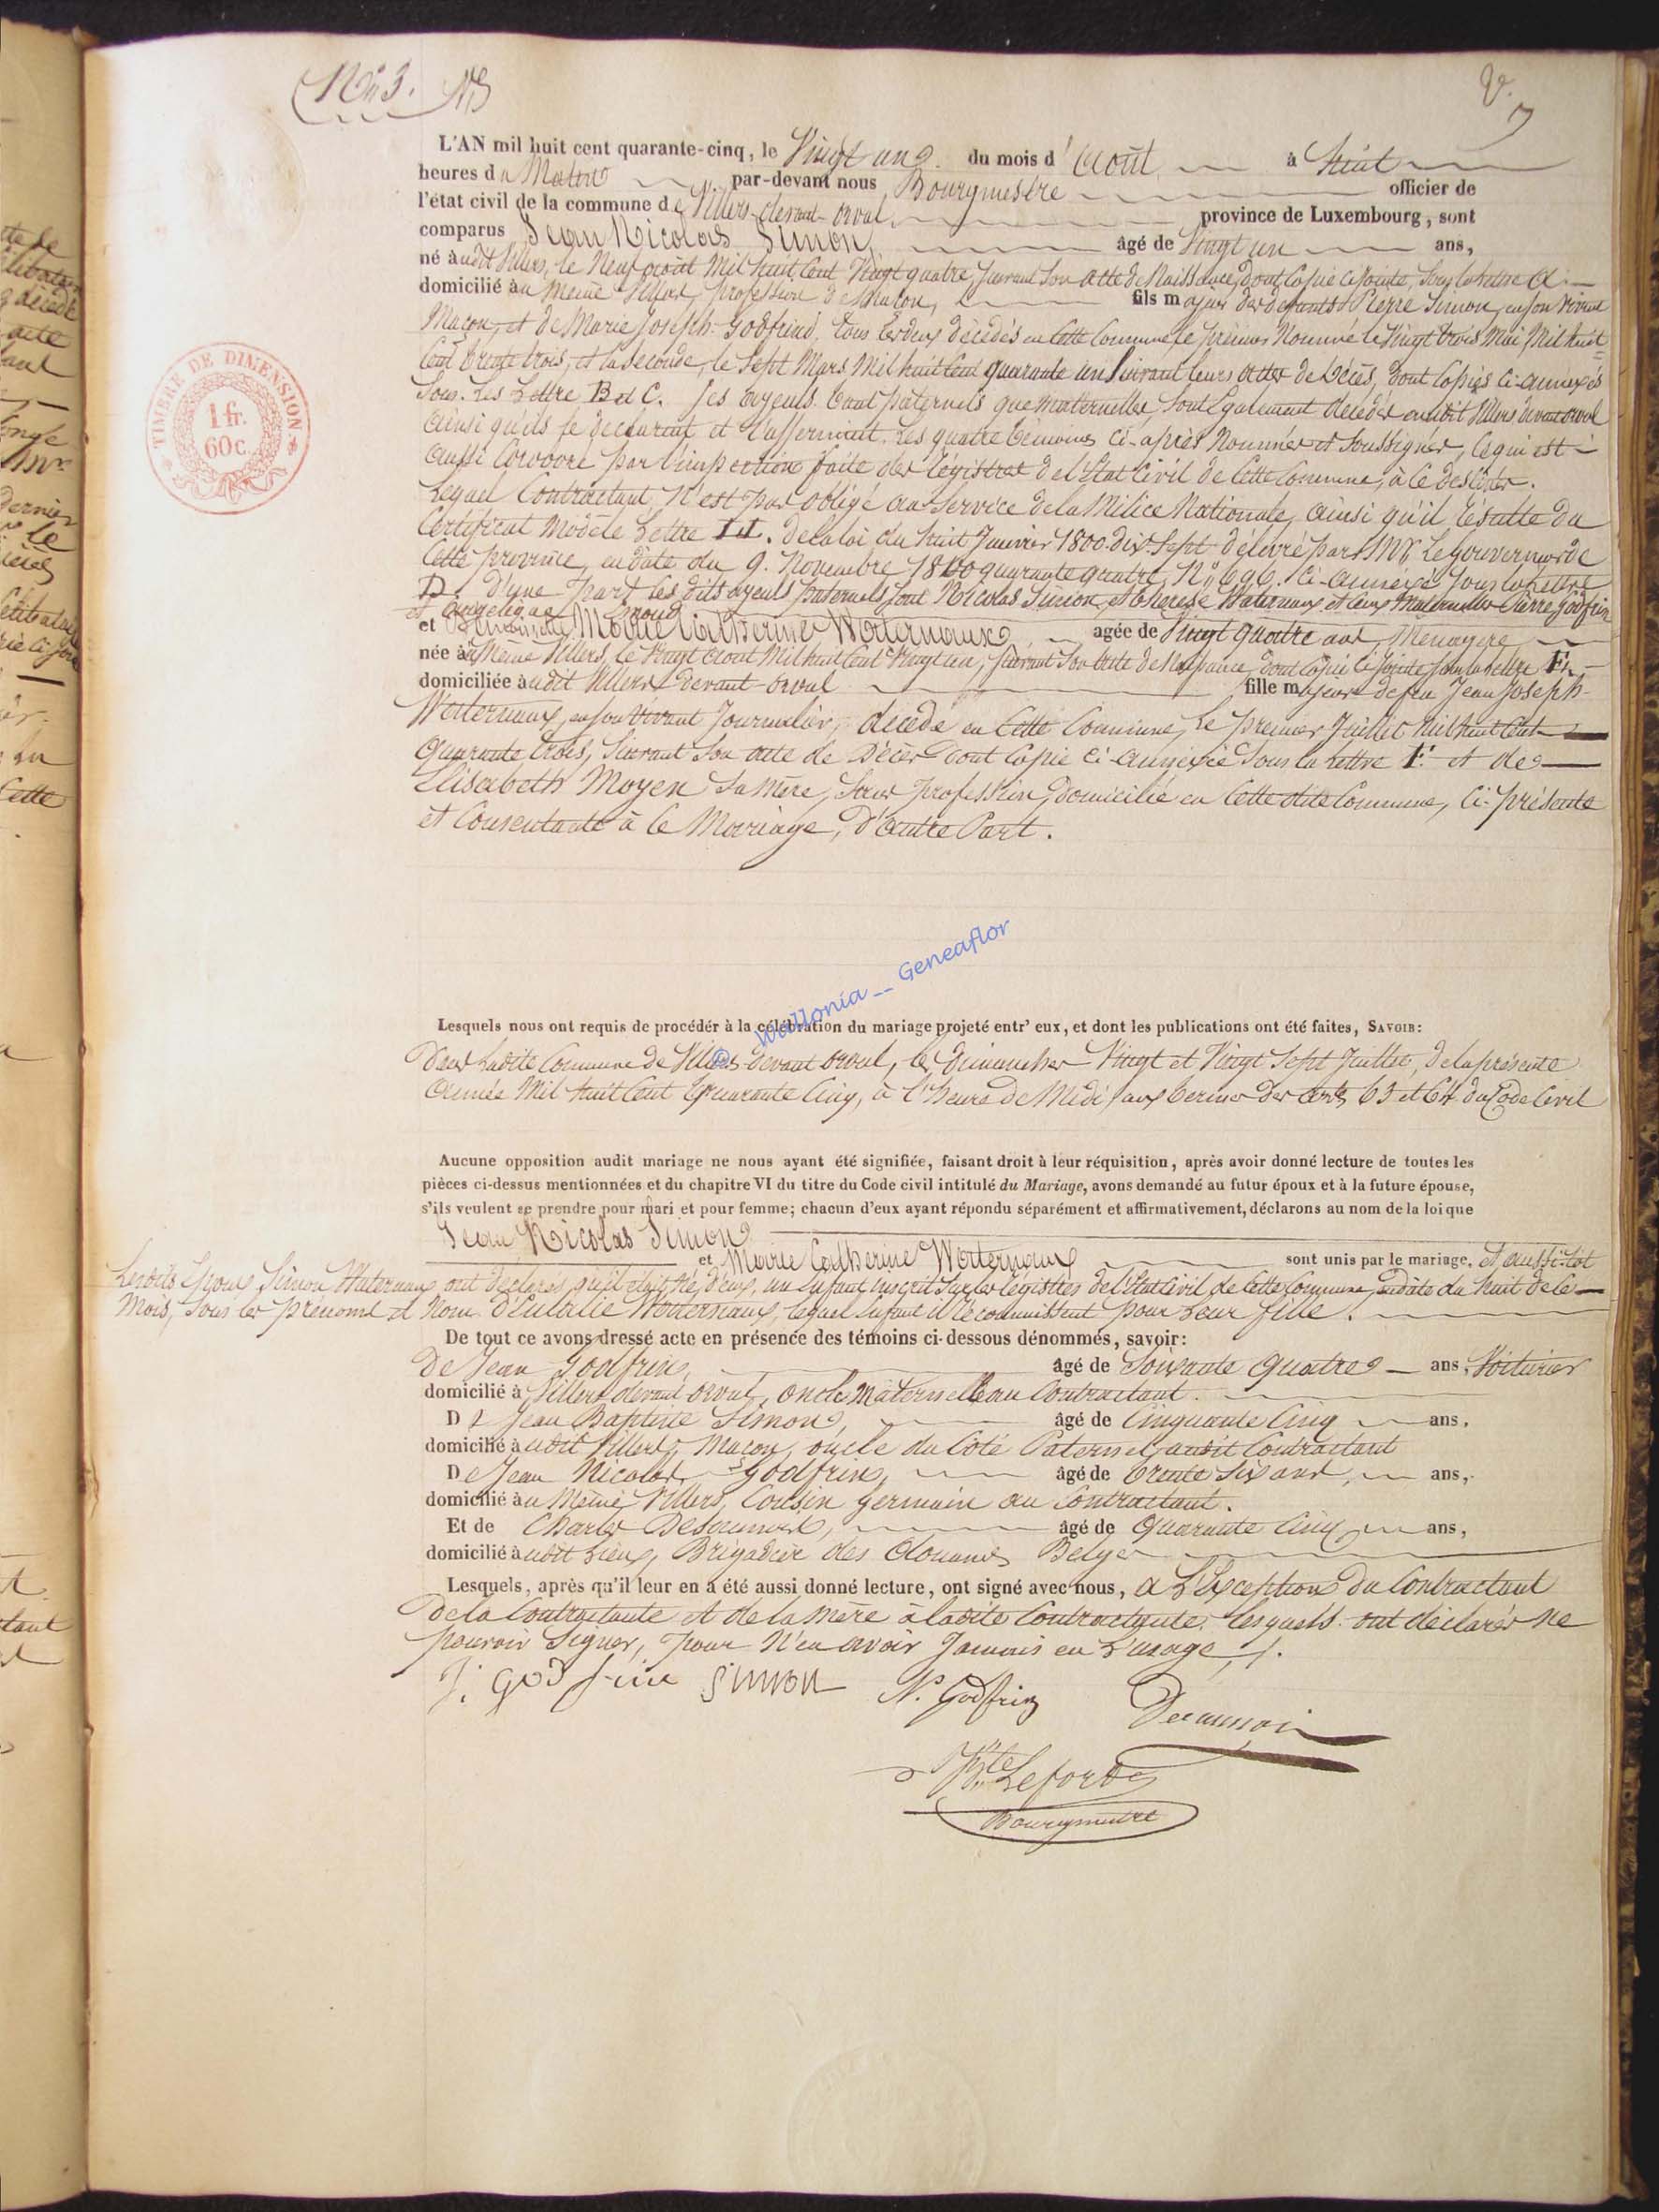 N° 3. NS
V.
7
TIMBRE DE DIMENSION
1 fr.
60 c.
L'AN mil huit cent quarante-cinq, le Vingt un du mois d'Août à huit
heures du Matin par-devant nous Bourgmestre officier de
l'état civil de la commune de Villers-devant-orval, province de Luxembourg, sont
comparus Jean Nicolas Simon, âgé de Vingt un ans,
né audit Villers, le Neuf août Mil huit Cent Vingt quatre, suivant Son acte de Naissance, dont Copie ci jointe, sous la lettre A
domicilié au même Villers, profession de Maçon, fils majeur des défunts Pierre Simon, en son vivant
Maçon, et de Marie Joseph Godfrind, tous les deux décédés en Cette Commune, le premier Nommé le Vingt trois Mai Mil huit
Cent trente trois, et la Seconde, le Sept Mars Mil huit Cent quarante un Suivant leurs actes de Décès, dont Copies ci-annexés
Sous Les Lettre B et C. Ses ayeuls tant paternels que maternelles sont également décédés audit Villers devant orval
ainsi qu'ils le declarent et l'afferment Les quatre témoins ci-après Nommés et Soussigner, ce qui est
aussi Corrovré par l'inspection faite des Régistres de l'Etat Civil de Cette Commune, à Ce destinés.
Lequel Contractant N'est pas obligé au Service de la Milice Nationale, ainsi qu'il Résulte du
Certificat Modèle Lettre LL. de la loi du huit Janvier 1800 dix-Sept délivré par Mr. Le Gouverneur de
Cette province, en date du 9. Novembre 1800 quarante quatre, N° 696. ci-annéxé Sous la lettre
D. D'une part les dits ayeuls paternels sont Nicolas Simon, et therese Waternaux et Ceux Maternelles Pierre Godfrin
et angelique
et Marie Catherine Waternaux agée de Vingt quatre ans, Ménagère
née au Même Villers, le Vingt Aout Mil huit Cent Vingt un, suivant Son acte de Naissance, dont Copie ci jointe sous la lettre E.
domiciliée audit Villers devant-orval fille majeure de feu Jean Joseph
Waternaux, en son Vivant Journalier, décédé en Cette Commune, Le premier Juillet Mil huit Cent
Quarante trois, Suivant Son acte de Décès dont Copie ci-annéxée Sous la Lettre F. et de
Elisabeth Moyen Sa Mère, Sans profession, domicilié en Cette dite Commune, ci-présente
et Consentante à Ce Mariage, D'autre Part.
© Wallonia -- Geneaflor
Lesquels nous ont requis de procéder à la célébration du mariage projeté entr' eux, et dont les publications ont été faites, SAVOIR:
Dans Ladite Commune de Villers-devant orval, les dimanches Vingt et Vingt Sept Juillet, de la présente
année Mil huit Cent Quarante Cinq, à l'heure de Midi, aux termes des arts 63 et 64 du Code Civil
Aucune opposition audit mariage ne nous ayant été signifiée, faisant droit à leur réquisition, après avoir donné lecture de toutes les
pièces ci-dessus mentionnées et du chapitre VI du titre du Code civil intitulé du Mariage, avons demandé au futur époux et à la future épouse,
s'ils veulent se prendre pour mari et pour femme; chacun d'eux ayant répondu séparément et affirmativement, déclarons au nom de la loi que
Jean Nicolas Simon
et Marie Catherine Waternaux sont unis par le mariage, et aussi-tot
Lesdits Epoux Simon Waternaux ont déclarés qu'il était Né d'eux, un Enfant inscrit sur les Régistres de l'Etat Civil de Cette Commune, en date du huit de Ce
Mois, Sous les prénoms et Nom d'Eulalie Waternaux, lequel Enfant il Reconnaissent pour Leur fille.
De tout ce avons dressé acte en présence des témoins ci-dessous dénommés, savoir:
De Jean Godfrin, âgé de Soixante Quatre ans, Voiturier
domicilié à Villers devant orval, oncle Maternelle au Contractant.
De Jean Baptiste Simon, âgé de Cinquante Cinq ans,
domicilié audit Villers, Maçon, oncle du Coté Paternel, audit Contractant
De Jean Nicolas Godfrin, âgé de trente Six ans, ans,
domicilié au Même Villers, Cousin germain au Contractant.
Et de Charles âgé de Quarante Cinq ans,
domicilié audit Lieux, Brigadier des Douanes Belges
Lesquels, après qu'il leur en a été aussi donné lecture, ont signé avec nous, à L'Exception du Contractant
de la Contractante et de la Mère à ladite Contractante, lesquels ont déclarés ne
pouvoir Signer, pour N'en avoir Jamais eu L'usage.
J. Godfrin Simon N. Godfrin
Lefort
Bourgmestre